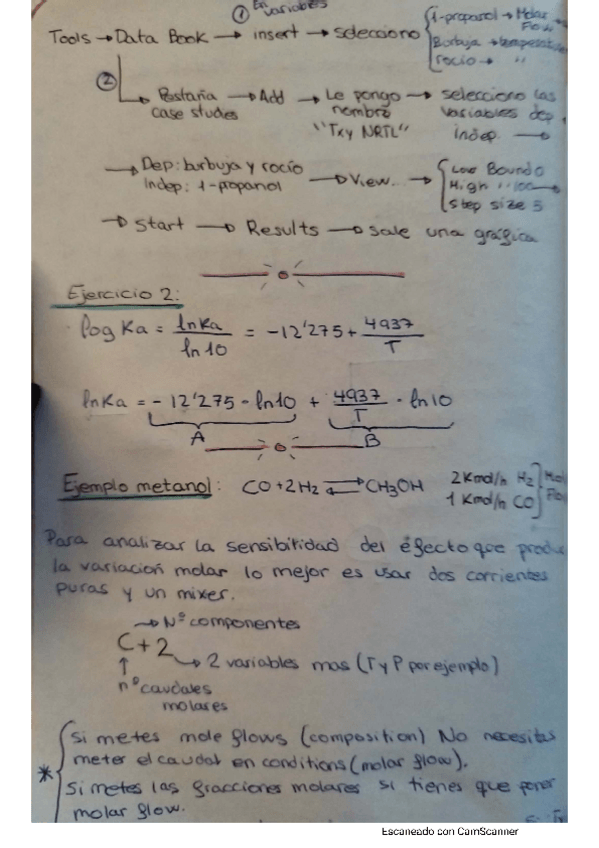 ① En variables
Tools → Data Book → insert → selecciono { 1-propanol → Molar Flow
Burbuja → temperatura
rocío → "
② Pestaña case studies → Add → Le pongo nombre "Txy NRTL" → selecciono las variables dep, indep. →
→ Dep: burbuja y rocío
Indep: 1-propanol → View... → { Low Bound 0
High " 100
Step size 5
→ Start → Results → sale una gráfica
Ejercicio 2:
log Ka = ln Ka / ln 10 = -12'275 + 4937 / T
ln Ka = -12'275 · ln 10 + 4937 / T · ln 10
A B
Ejemplo metanol: CO + 2H2 ⇌ CH3OH 2 Kmol/h H2
1 Kmol/h CO
Para analizar la sensibilidad del efecto que produce
la variación molar lo mejor es usar dos corrientes
puras y un mixer.
→ Nº componentes
C + 2 → 2 variables mas (T y P por ejemplo)
↑
nº caudales
molares
* { Si metes mole flows (composition) No necesitas
meter el caudal en conditions (molar flow).
Si metes las fracciones molares si tienes que poner
molar flow.
Escaneado con CamScanner